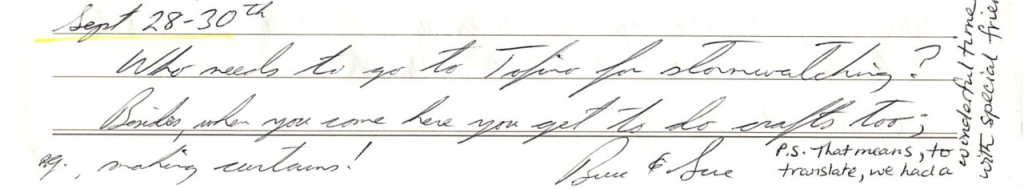 Sept 28-30th
Who needs to go to Tofino for stormwatching?
Besides, when you come here you get to do crafts too;
e.g., making curtains! & Sue
P.S. That means, to
translate, we had a
wonderful time
with special